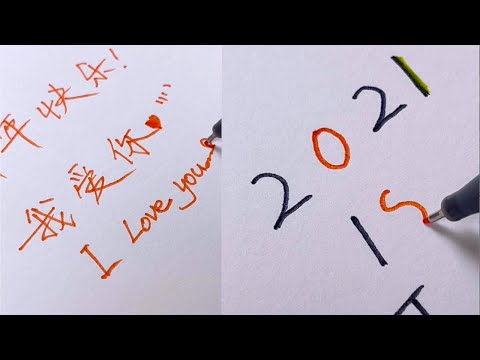 年快乐!
我爱你
I Love you
2021
IS